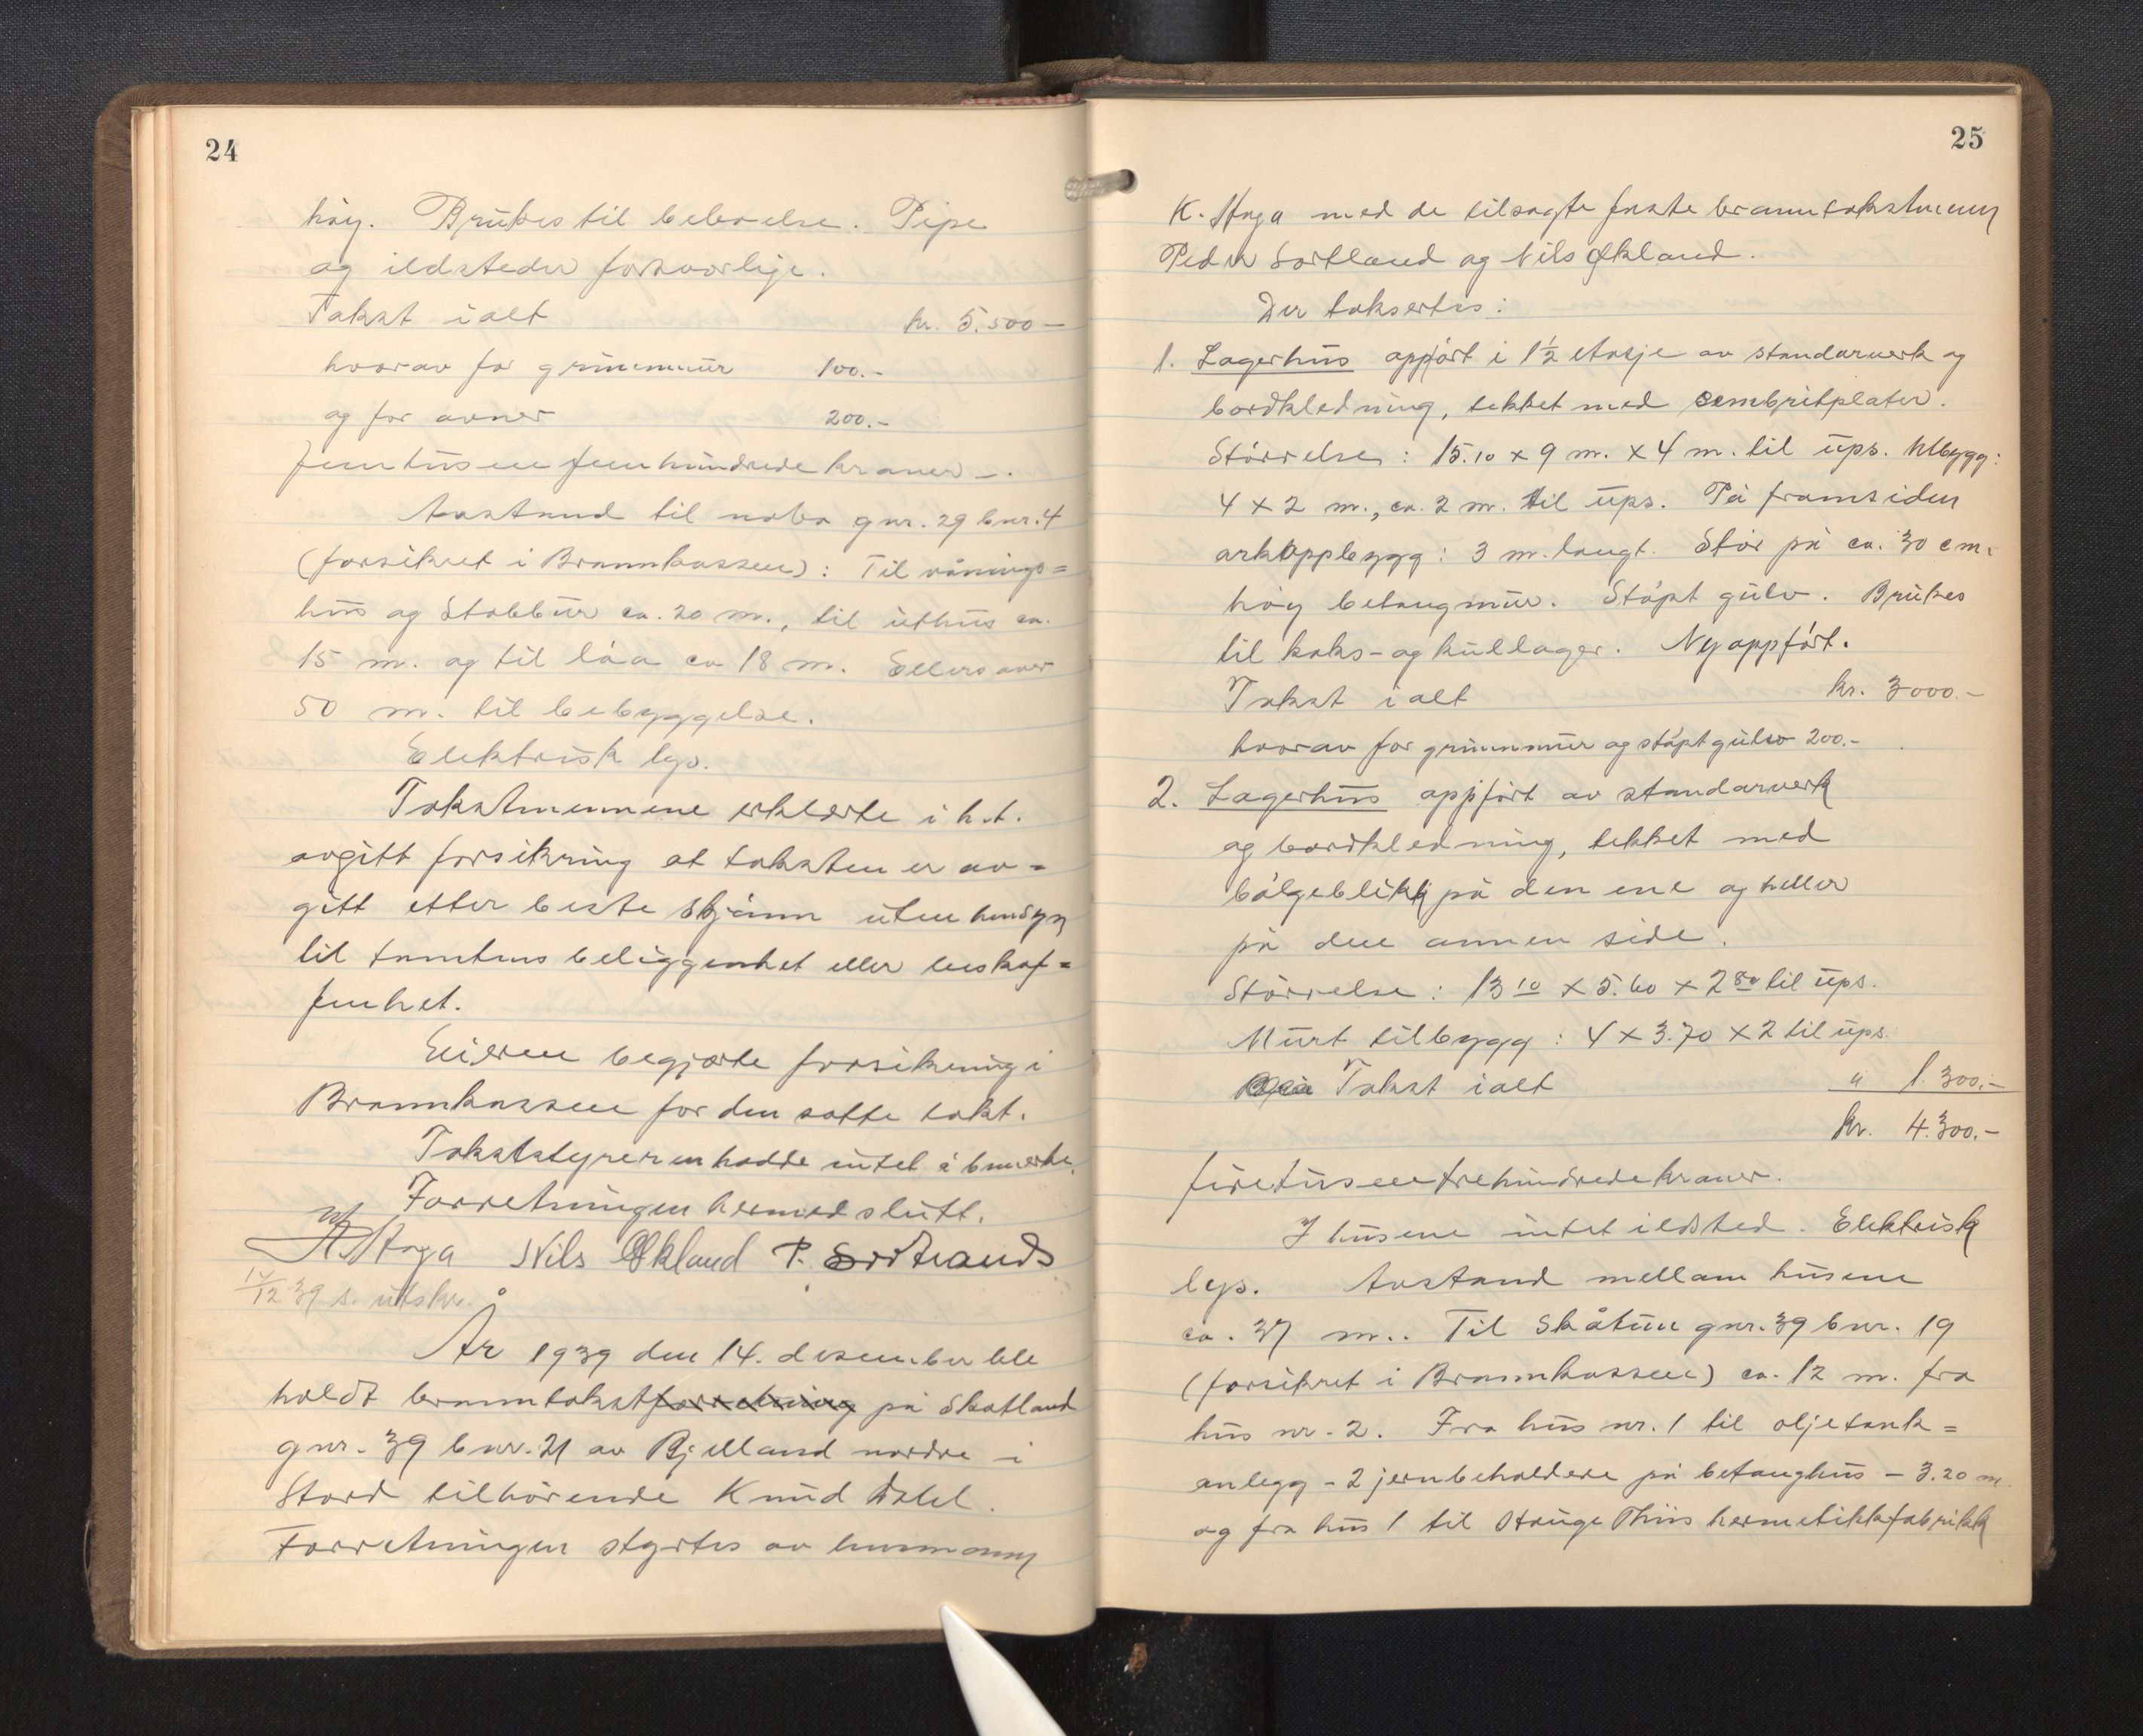 24
høy. Brukes til beboelse. Pipe
og ildsteder forsvarlige.
Takst ialt kr. 5.500 —
hvorav for grunnmur 100.-
og for ovner 200.-
femtusenfemhundredekroner —.
Avstand til nabo gnr. 29 bnr. 4
(forsikret i Brannkassen): Til vånings=
hus og Stabbur ca. 20 m., til uthus ca.
15 m. og til løa ca 18 m. Ellers over
50 m. til bebyggelse.
Elektrisk lys.
Takstmennene erklærte i h.t.
avgitt forsikring at taksten er av=
gitt etter beste skjønn uten hensyn
til tomtens beliggenhet eller beskaf=
fenhet.
Eieren begjærte forsikring i
Brannkassen for den satte takt.
Takststyreren hadde intet å bemerke.
Forretningen hermed slutt.
K. Haga Nils Økland P. Sortland
12/12 39 s. utskr.
År 1939 den 14. desember ble
holdt branntakstforretning på Skotland
gnr. 39 bnr. 21 av Bjelland nordre i
Stord tilhörende Knud Dahl.
Forretningen styrtes av lensmann
25
K. Haga med de tilsagte faste branntakstmenn
Peder Sortland og Nils Økland.
Der taksertes:
1. Lagerhus oppført i 1½ etasje av standarverk og
bordkledning, tekket med sembritplater.
Störrelse: 15.10 x 9 m. x 4 m. til ups. Utbygg:
4 x 2 m., ca. 2 m. til ups. På framsiden
arkoppbygg: 3 m. langt. Står på ca. 30 cm.
høy betongmur. Støpt gulv. Brukes
til koks- og kullager. Ny oppført.
Takst ialt kr. 3000.-
hvorav for grunnmur og støpt gulv 200.-
2. Lagerhus oppført av standarverk
og bordkledning, tekket med
bølgeblikk på den ene og heller
på den annen side.
Störrelse: 13 10 x 5.60 x 2 80 til ups.
Murt tilbygg: 4 x 3.70 x 2 til ups.
Takst ialt " 1.300.-
kr. 4.300.-
firetusentrehundredekroner.
I husene intet ildsted. Elektrisk
lys. Avstand mellom husene
ca. 37 m.. Til Skåtun gnr. 39 bnr. 19
(forsikret i Brannkassen) ca. 12 m. fra
hus nr. 2. Fra hus nr. 1 til oljetank=
anlegg - 2 jernbeholdere på betonghus - 3.20 m.
og fra hus 1 til Hauge Thiis hermetikkfabrikk